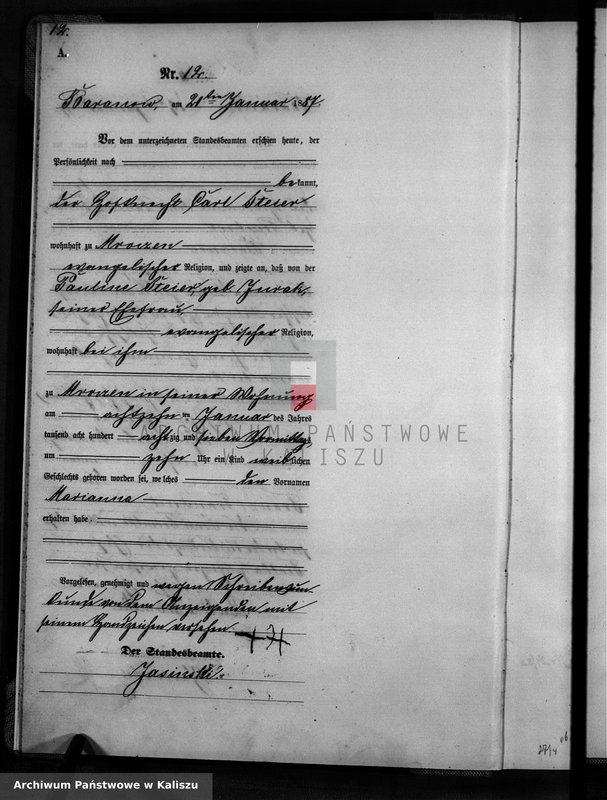 12.
A.
Nr. 12.
Baranow, am 21ten Januar 1887.
Vor dem unterzeichneten Standesbeamten erschien heute, der
Persönlichkeit nach
bekannt,
der Hofknecht Carl Steier
wohnhaft zu Mroczen
evangelischer Religion, und zeigte an, daß von der
Pauline Steier, geb. Jurak,
seiner Ehefrau
evangelischer Religion,
wohnhaft bei ihm
zu Mroczen in seiner Wohnung
am achtzehn ten Januar des Jahres
tausend acht hundert achtzig und sieben Vormittags
um zehn Uhr ein Kind weiblichen
Geschlechts geboren worden sei, welches den Vornamen
Marianna
erhalten habe.
Vorgelesen, genehmigt und wegen Schreibensun-
kunde von dem Anzeigenden mit
seinem Handzeichen versehen +++
Der Standesbeamte.
Jasinski.
ARCHIWUM PAŃSTWOWE
W KALISZU
Archiwum Państwowe w Kaliszu